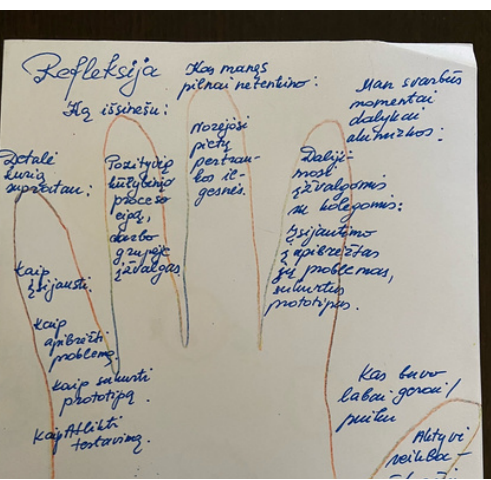 Refleksija
Kas manęs
pilnai netenkino:
Man svarbūs
momentai
dalykai
Ką išsinešu:
Detalė
kurią
supratau:
Pozityvią
kūrybinio
proceso
eigą,
darbo
grupėje
įžvalgas
Norėjosi
pietų
pertrau-
kos il-
gesnės.
Daliji-
mosi
įžvalgomis
su kolegomis:
Įsijautimo
į apibrėžtas
problemas,
sukurtus
prototipus.
Kaip
įsijausti.
Kaip
apibrėžti
problemą.
Kaip sukurti
prototipą.
Kaip Atlikti
testavimą.
Kas buvo
labai gerai/
puiku
Aktyvi
veikla-